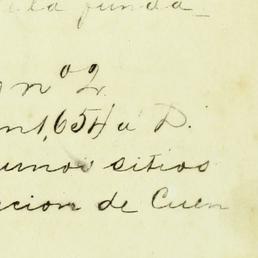 e la funda_
n nº 2.
n 1,654 a D.
unos sitios
cion de Cuen